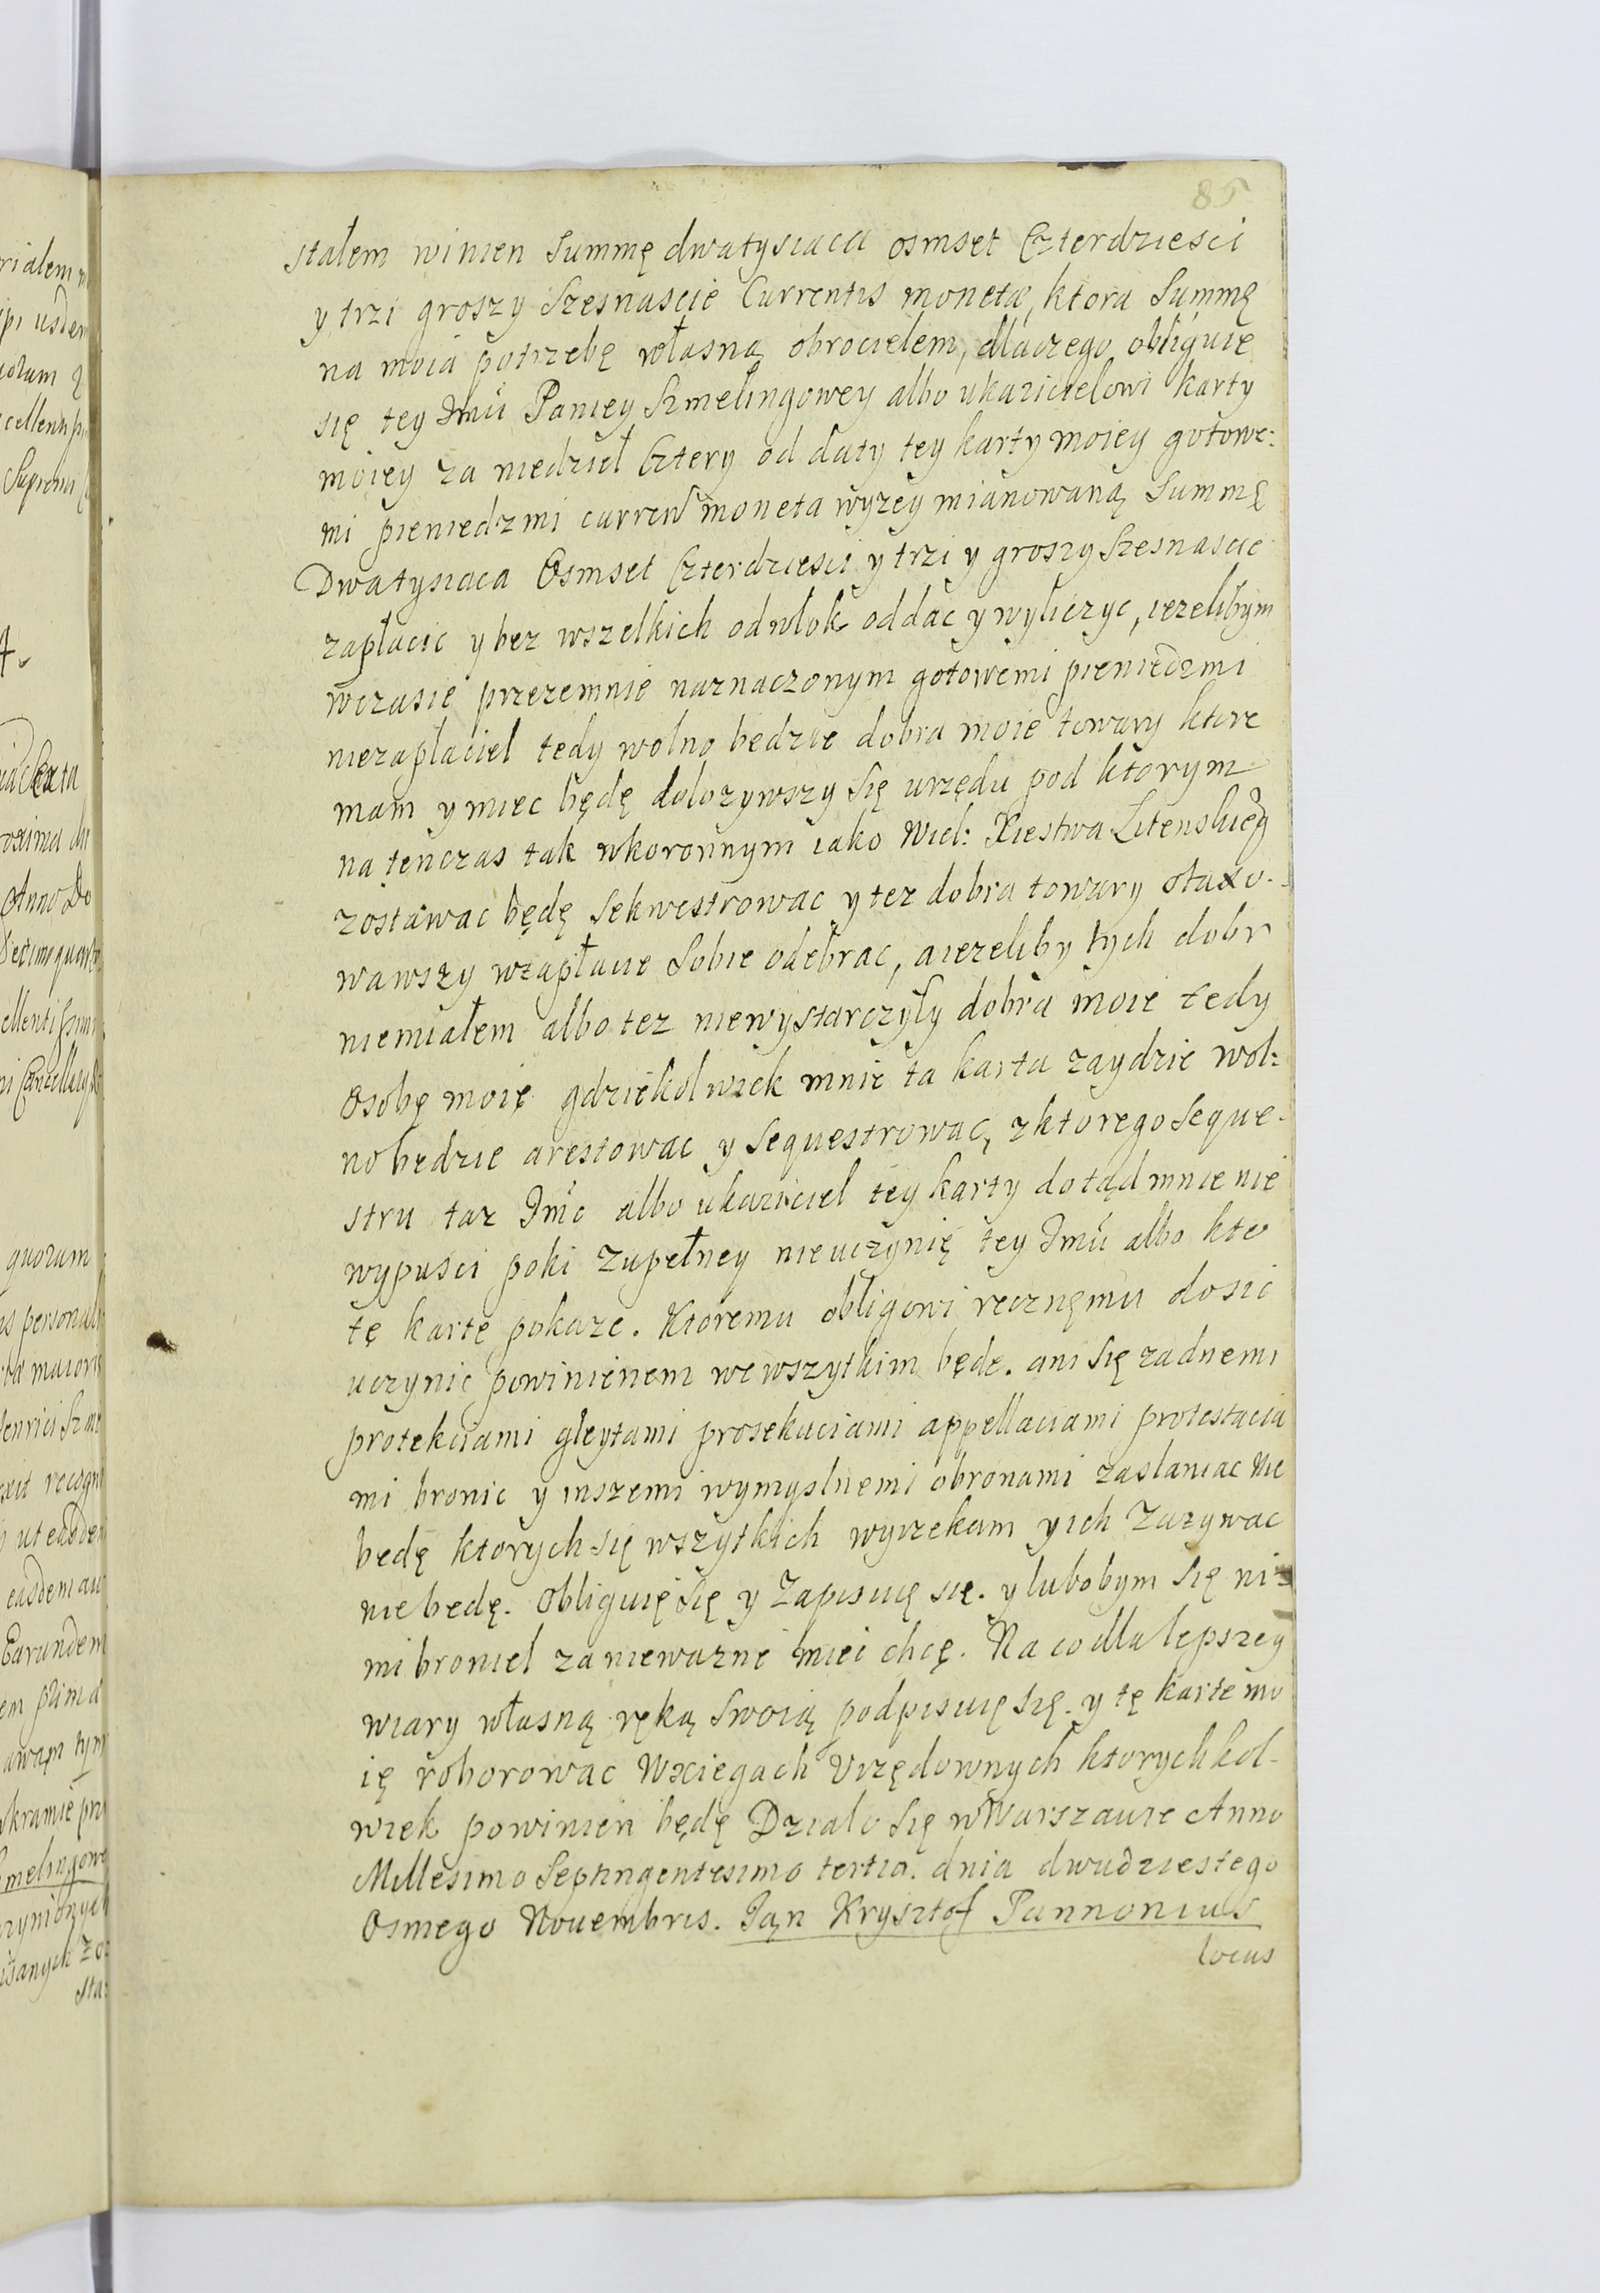 85
stałem winien Summę dwatysiaca osmset Czterdziesci
y trzi groszy Szesnascie Currentis moneta, ktora Summę
na moia potrzebę własną obrociełem, dlaczego obliguię
się tey Jmći Paniey Szmelingowey albo ukazicielowi karty
moiey za niedziel Cztery od daty tey karty moiey gotowe:
mi pieniedzmi curren moneta wyzey mianowaną Summę
Dwatysiaca Osmset Czterdziesci y trzi y groszy Szesnascie
zapłacic y bez wszelkich odwłok oddac y wyliczyc, iezelibym
wczasie przezemnie naznaczonym gotowemi pieniedzmi
niezapłaciel tedy wolno bedzie dobra moie towary ktore
mam y miec będę dolozywszy się urzędu pod ktorym
na tenczas tak wkoronnym iako Wiel: Xiestwa Litenskieg
zostawac będę Sekwestrowac y tez dobra towary otaxo-
wawszy wzapłacie Sobie odebrac, a iezeliby tych dobr
niemiałem albo tez niewystarczyły dobra moie tedy
Osobę moię gdziekolwiek mnie ta karta zaydzie wol:
no będzie arestowac y Sequestrowac, zktorego Seque-
stru taz Jmć albo ukaziciel tey karty dotąd mnie nie
wypusci poki Zupełney nieuczynię tey Jmći albo kto
tę kartę pokaze. Ktoremu obligowi ręcznęmu dosic
uczynic powinienem we wszytkim będe. ani się zadnemi
protekciami gleytami prosekuciami appellaciami protestacia
mi bronic y inszemi wymyslnemi obronami zaslaniac nie
będę ktorych się wszytkich wyrzekam y ich Zazywac
nie bedę. Obliguię się y Zapisuię się. y lubobym się ni-
mi broniel za niewazne miei chcę. Na co dla lepszey
wiary własną ręką Swoią podpisuię się. y tę kartę mo
ię roborowac Wxiegach Urzędownych ktorychkol-
wiek powinien będę Działo się w Warszawie Anno
Millesimo Septingentesimo tertio. dnia dwudziestego
Osmego Nouembris. Jąn Krysztof Pannonius
locus